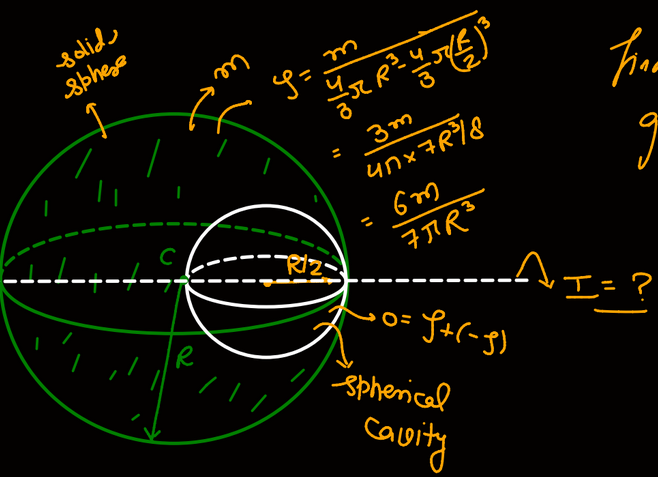 solid
sphere
m
ρ = m / (4/3 π R³ - 4/3 π (R/2)³)
= 3m / (4π × 7R³/8)
= 6m / (7πR³)
C
R/2
R
I = ?
0 = ρ + (-ρ)
spherical
cavity